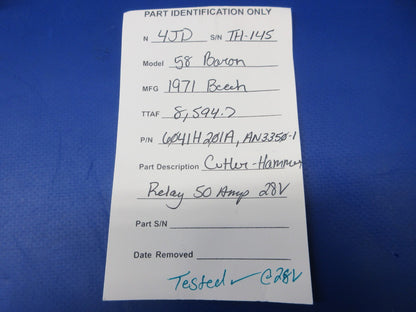 PART IDENTIFICATION ONLY
N 4JD S/N TH-145
Model 58 Baron
MFG 1971 Beech
TTAF 8,594.7
P/N 6041H201A, AN3350-1
Part Description Cutler-Hammer
Relay 50 Amp 28V
Part S/N
Date Removed
Tested ✓ @28V